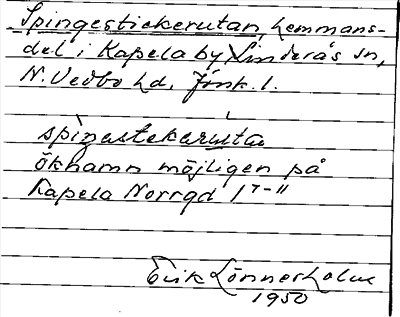 Spingestickerutan, hemmans-
del i Kapela by Linderås sn,
N. Vedbo hd. Jönk. l.
spingastekarutan
öknamn möjligen på
Kapela Norrgd 1 7-11
Erik Lönnerholm
1950